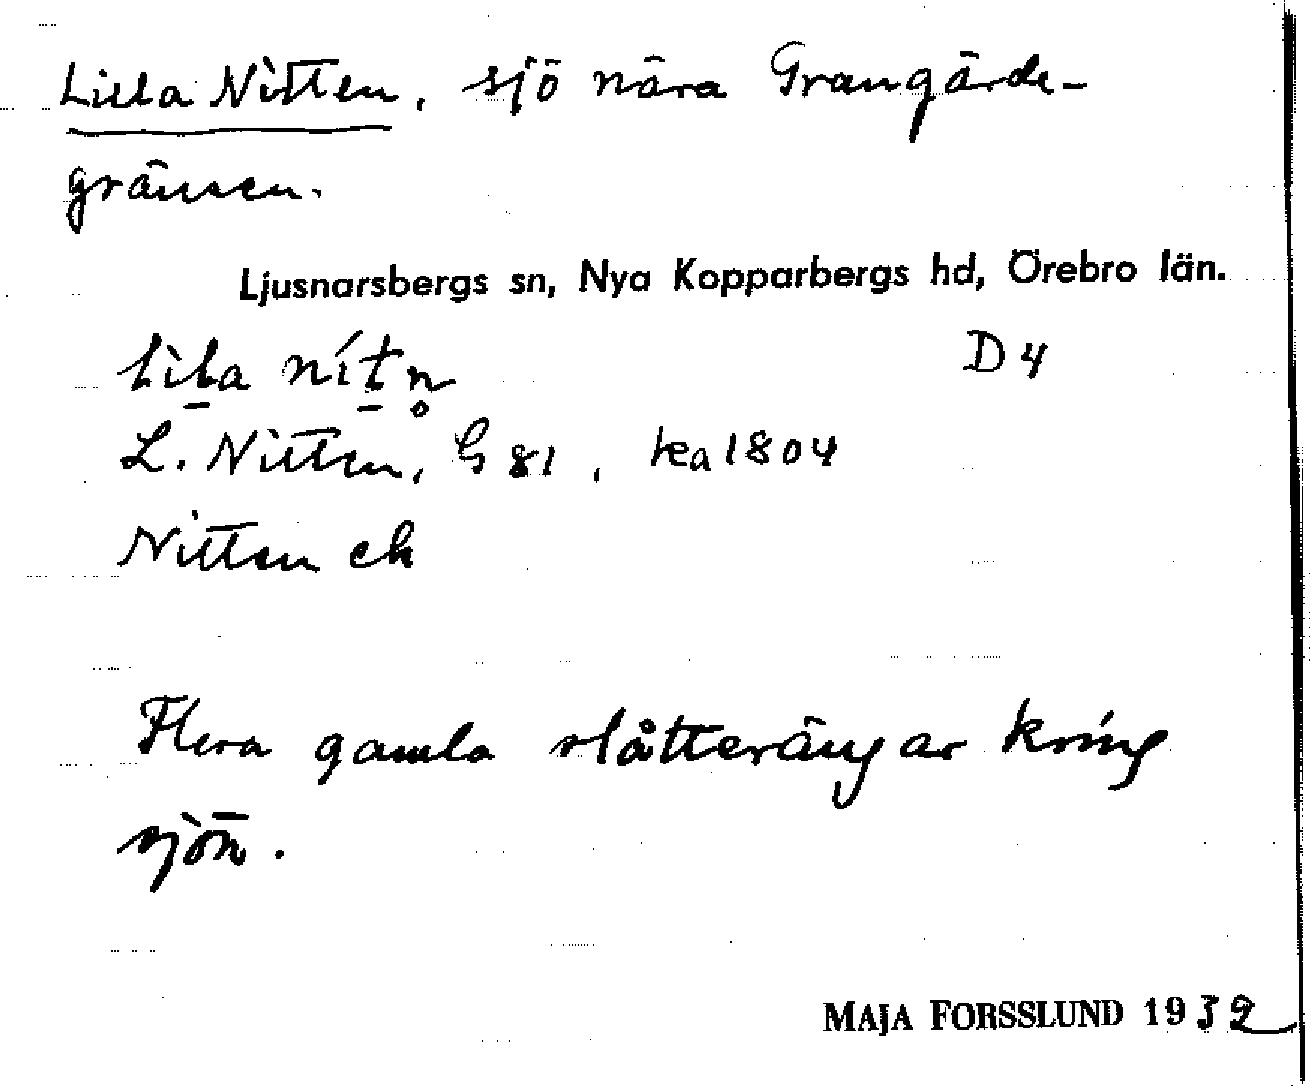 Lilla Nitten, sjö nära Grangärde-
gränsen.
Ljusnarsbergs sn, Nya Kopparbergs hd, Örebro län.
lìl̠a nít̠n̥ D4
L. Nitten, G 81, ka 1804
Nitten ek
Flera gamla slåtterängar kring
sjön.
MAJA FORSSLUND 1952